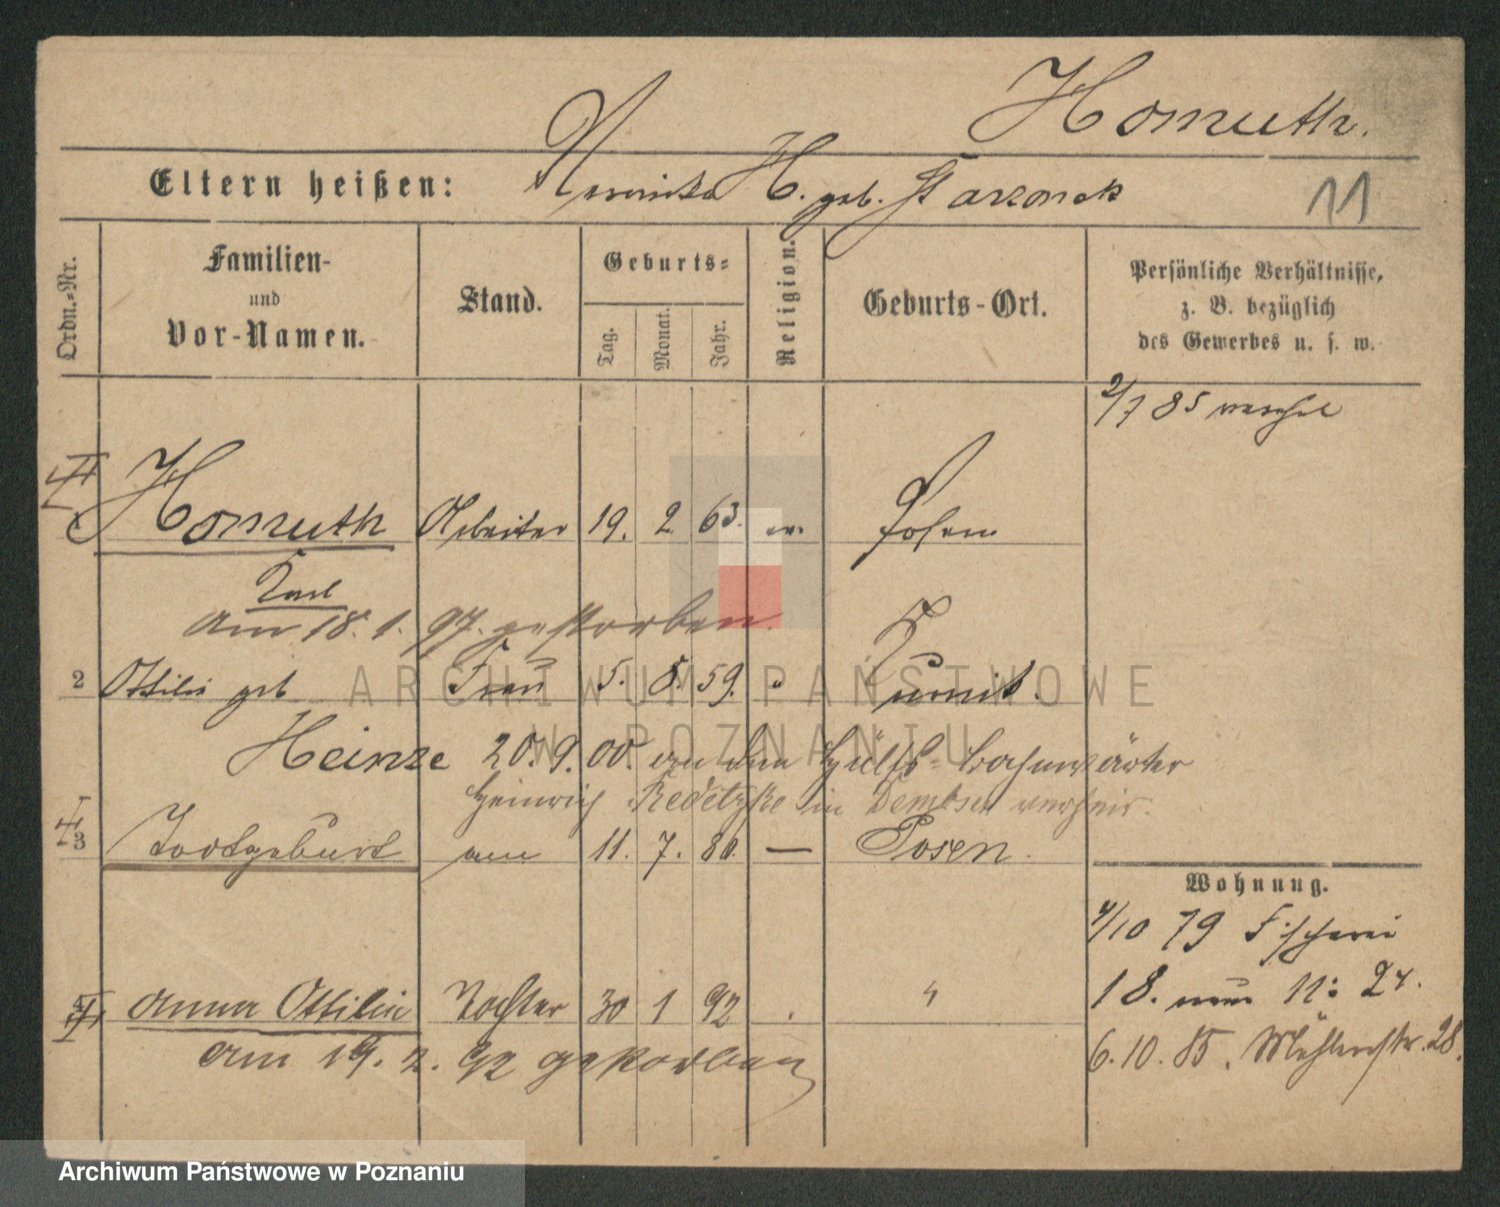 Homuth.
Eltern heißen: H. geb.
11
Ordn.-Nr.
Familien-
und
Vor-Namen.
Stand.
Geburts-
Tag.
Monat.
Jahr.
Religion.
Geburts-Ort.
Persönliche Verhältnisse,
z. B. bezüglich
des Gewerbes u. s. w.
2/7 85
1 Homuth Arbeiter 19. 2 63. ev. Posen
Karl
am 18. 1. 97. gestorben.
2 Ottilie geb Frau 5. 8. 59. "
Heinze 20. 9. 00. an den Hülfs-Bahnwärter
Heinrich in Dembsen verheir.
3 Todtgeburt am 11. 7. 86. — Posen.
Wohnung.
4/10 79 Fischerei
18. nun 11: 24.
Anna Ottilie Tochter 30 1 92 "
am 19. 2. 92 gestorben
6. 10. 85. Mühlenstr. 28.
ARCHIWUM PAŃSTWOWE
W POZNANIU
Archiwum Państwowe w Poznaniu